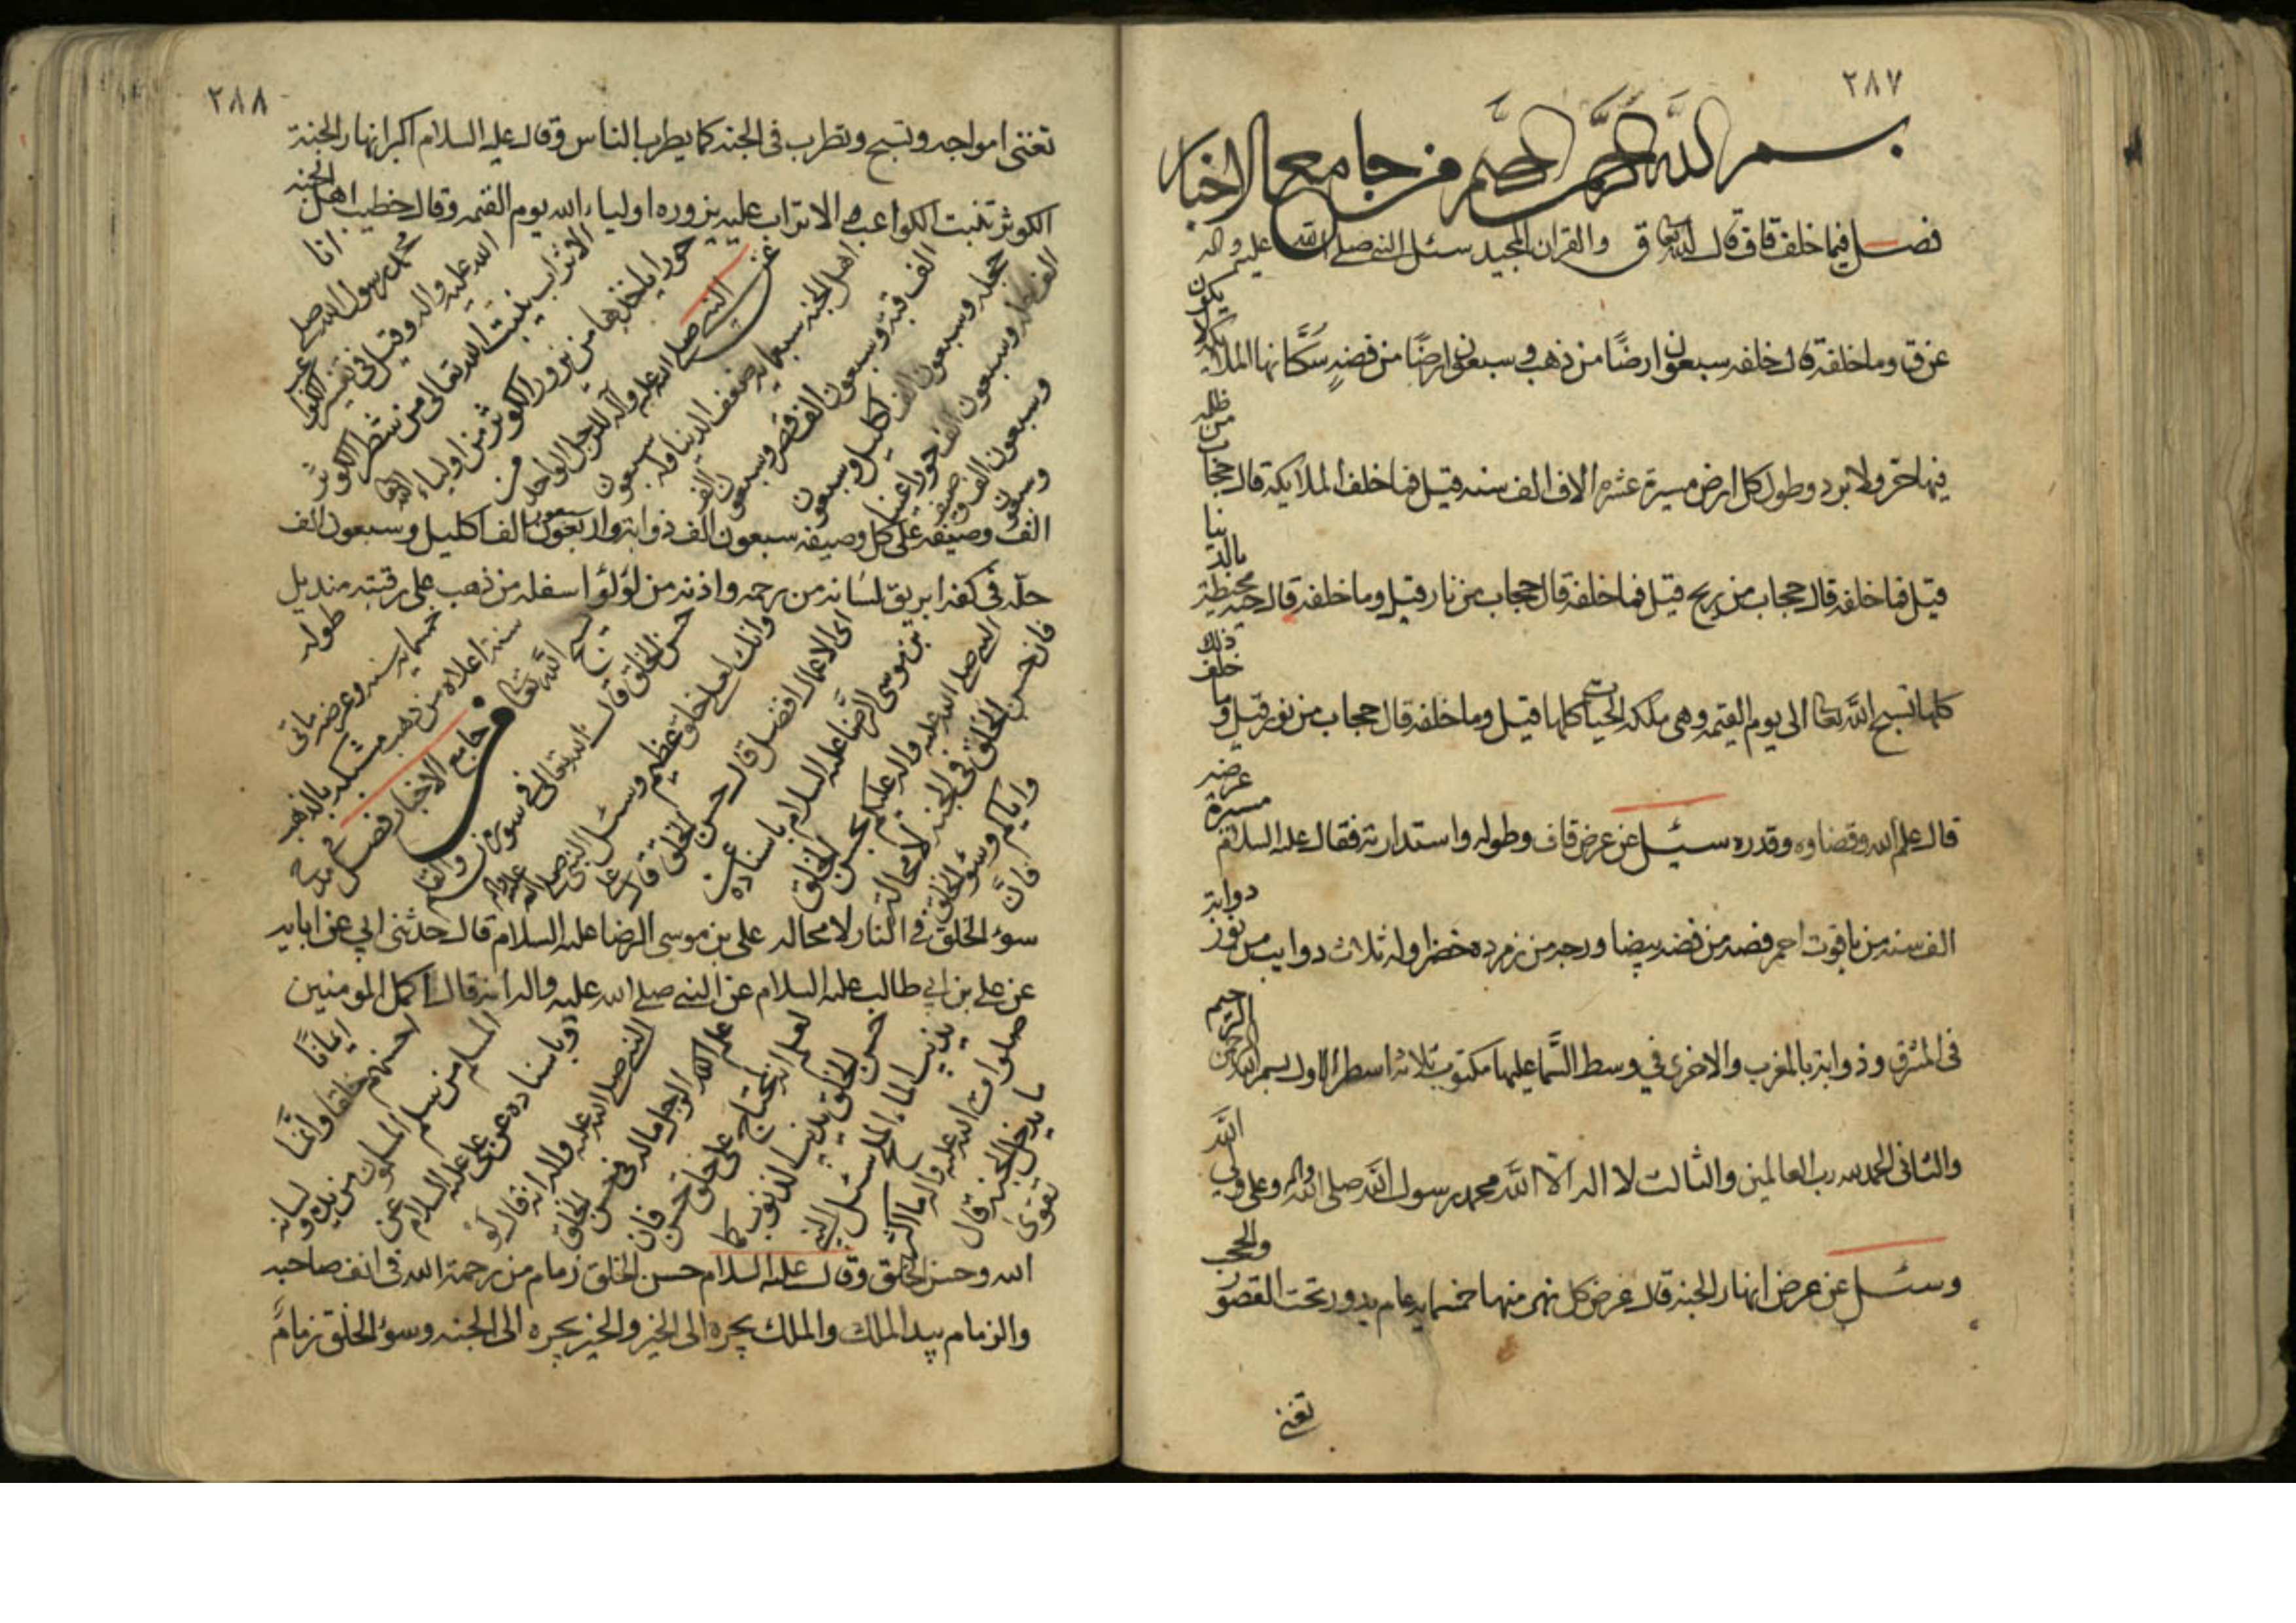 ٢٨٧
بسم الله الرحمن الرحيم من جامع الاخبار
فصل فيما خلف قاف قال الله تعالى ق والقران المجيد سئل النبي صلى الله عليه واله
عن ق وما خلفه قال خلفه سبعون ارضًا من ذهب وسبعون ارضًا من فضه سكّانها الملائكه يكون
فيها حرّ ولا برد وطول كل ارض مسيرة عشره الاف الف سنه قيل فما خلف الملايكة قال حجاب من ظلمه
قيل فما خلفه قال حجاب من ريح قيل فما خلفه قال حجاب من نار قيل وما خلفه قال حيه محيطة بالدنيا
كلها تسبح الله تعالى الى يوم القيمه وهي ملكه الحيات كلها قيل وما خلفه قال حجاب من نور قيل وما خلف ذلك
قال علم الله وقضاوه وقدره سئيل عن عرض قاف وطوله واستدارته فقال عليه السلام عرضه مسيرة
الف سنه من ياقوت احمر فضه من فضه بيضا وزجه من زمرده خضرا وله ثلاث دوايب من نور دوابة
فى المشرق وذوابة بالمغرب والاخرى في وسط السَّما عليها مكتوب ثلاثه اسطر الاول بسم الله الرحمن الرحيم
والثانى الحمد لله رب العالمين والثالث لا اله الا الله محمد رسول الله صلى الله واله وعلى ولي الله
وسئل عن عرض انهار الجنه قال عرض كل نهر منها خمسمايه عام يدور تحت القصور والحجب
تغنى
٢٨٨
تغنى امواجه وتسبح وتطرب فى الجنه كما يطرب الناس وقال عليه السلام اكبر انهار الجنة
الكوثر تنبت الكواعب الاتراب عليه يزوره اولياء الله يوم القيمه وقال خطيب اهل الجنه
انا
محمد رسول الله صلى
الله عليه واله وقيل فى تفسير الكواعب
الاتراب ينبت الله تعالى من شطر الكوثر
حورا ياخذها من يزور الكوثر من اولياء الله تعالى
عن النبي صلى الله عليه وآله للرجل الواحد من
اهل الجنه سبعمايه ضعف الدنيا وله سبعون
الف قبه وسبعون الف قصر وسبعون الف
حجله وسبعون الف اكليل وسبعون
الف حله وسبعون الف حورا عينا
وسبعون الف وصيفه
وسبعون
الف وصيفه على كل وصيفه سبعون الف ذوابة واربعون الف اكليل وسبعون الف
حلّه فى كفه ابريق لسانه من رحمه واذنه من لؤلؤ اسفله من ذهب على رقبته منديل
طوله
خمسمايه سنه وعرضه مائتى
سنة اعلاه من ذهب مشبكه بالذهب
يسبح الله تعالى من جامع الاخبار فصل فى مدح
حسن الخلق قال الله تعالى فى سوره ن والقلم
وانك لعلى خلق عظيم وسئل النبي صلى الله عليه واله
اى الاعمال افضل قال حسن الخلق قال على
بن موسى الرضا عليه السلام باسناده عن
النبي صلى الله عليه واله عليكم بحسن الخلق
فان حسن الخلق فى الجنه لا محالة
واياكم وسوء الخلق
فانّ
سوء الخلق فى النار لا محاله على بن موسى الرضا عليه السلام قال حدثنى ابي عن ابايه
عن على بن ابي طالب عليه السلام عن النبي صلى الله عليه واله انه قال اكمل المومنين
ايمانًا
احسنهم خلقا وانَّما
المسلم من سلم المسلمون من يده ولسانه
وباسناده عن على عليه السلام عن
النبي صلى الله عليه واله انه قال لَو
علم الرجل ماله فى حسن الخلق
لعلم انه يحتاج على خلق حسن فان
حسن الخلق يذيب الذنوب كما
يذيب الماء الملح سئل النبي
صلوات الله عليه واله ما اكثر
ما يدخل الجنه قال
تقوى
الله وحسن الخلق وقال عليه السلام حسن الخلق زمام من رحمة الله فى انف صاحبه
والزمام بيد الملك والملك يجره الى الخير والخير يجره الى الجنه وسوء الخلق زمام